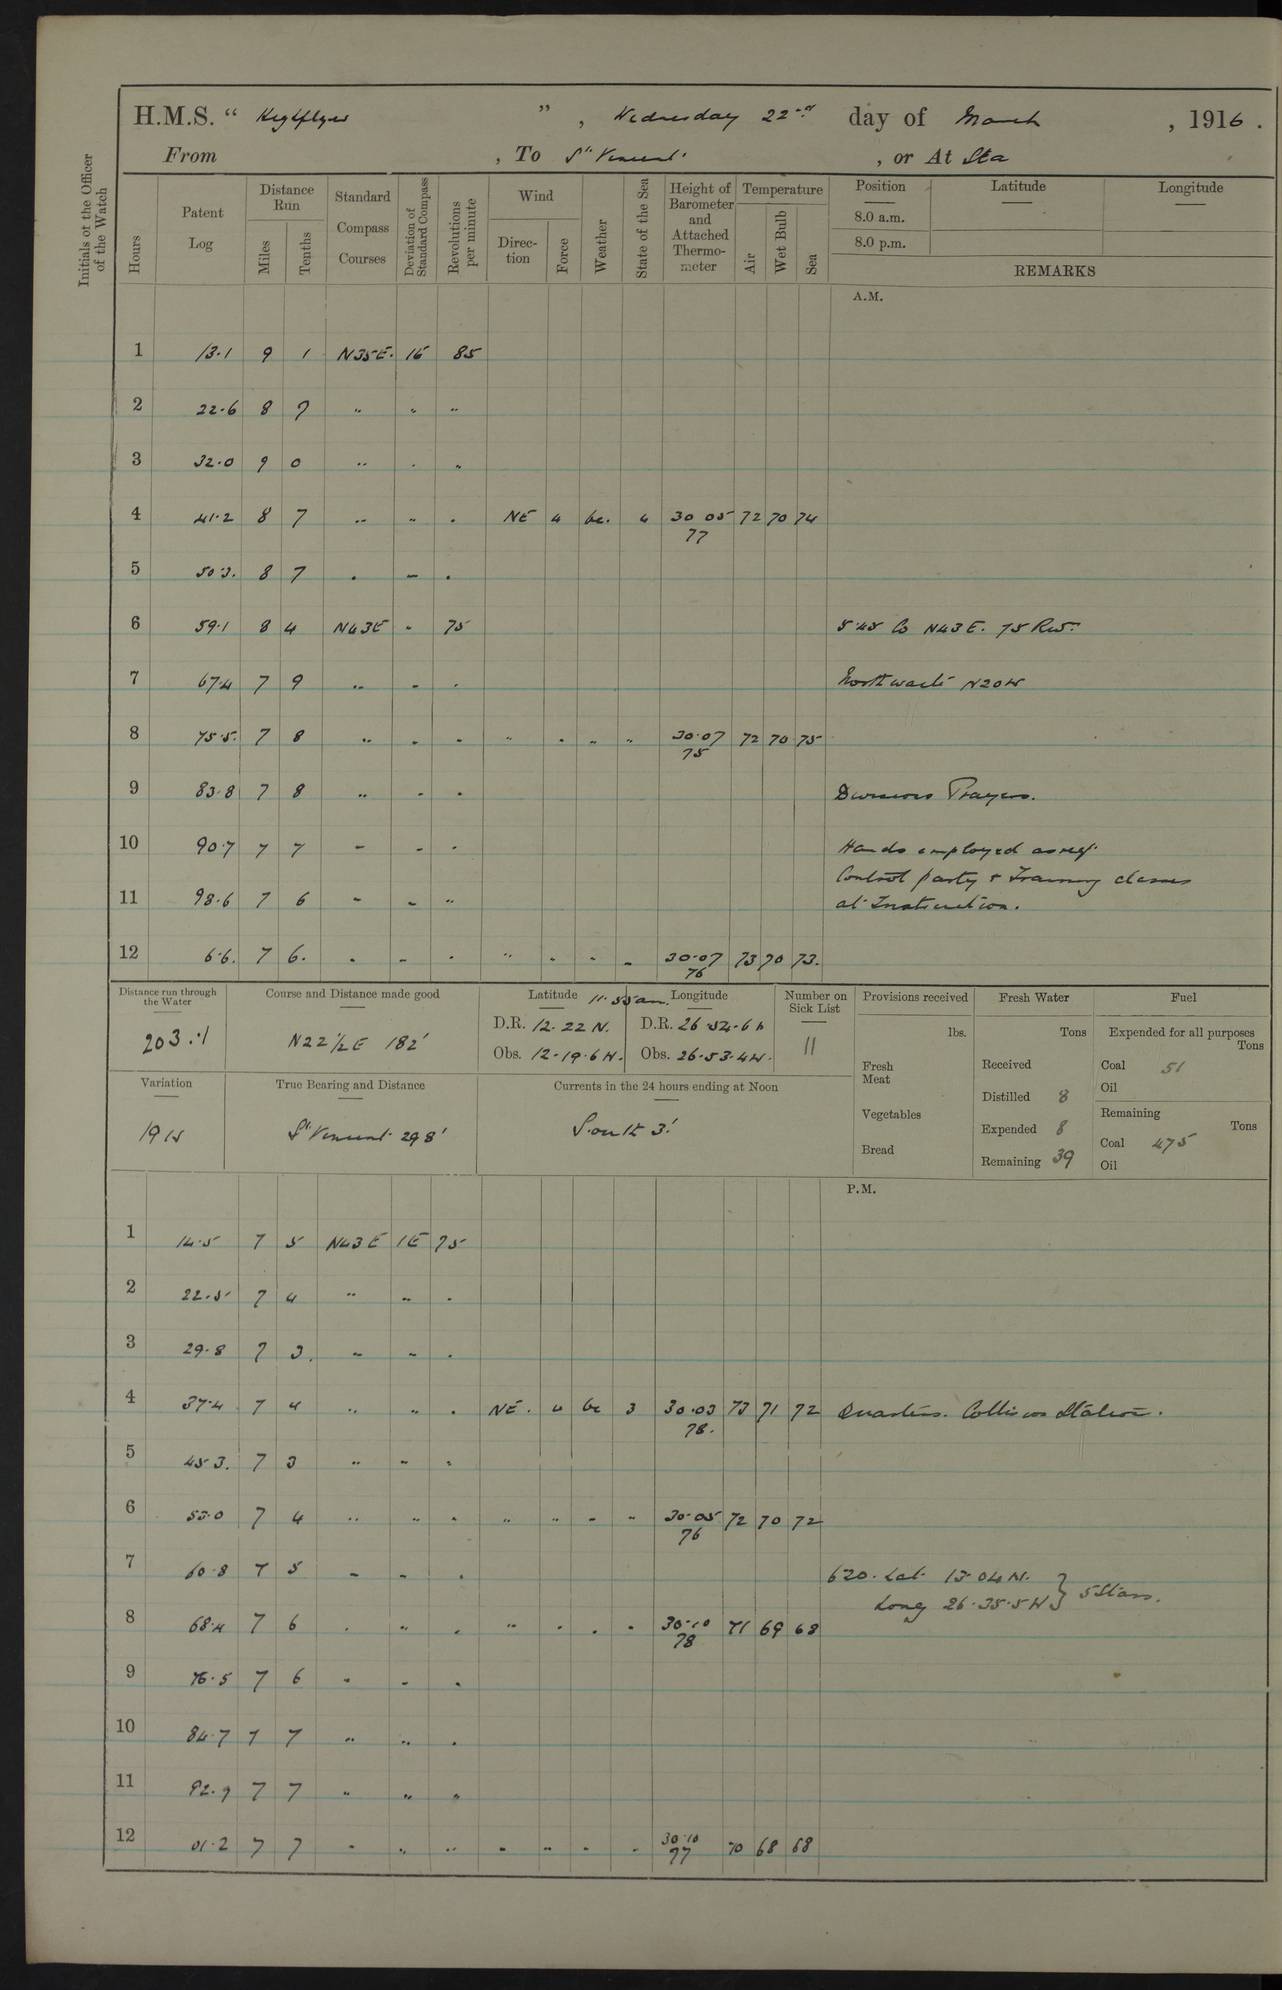 H.M.S. “ Highflyer ” , Wednesday 22nd day of March , 1916 .
From , To St Vincent , or At Sea
Initials of the Officer of the Watch
Hours
Patent Log
Distance Run
Miles
Tenths
Standard Compass Courses
Deviation of Standard Compass
Revolutions per minute
Wind
Direction
Force
Weather
State of the Sea
Height of Barometer and Attached Thermometer
Temperature
Air
Wet Bulb
Sea
Position Latitude Longitude
8.0 a.m.
8.0 p.m.
REMARKS
A.M.
1 13.1 9 1 N35E. 1E 85
2 22.6 8 9 " " "
3 32.0 9 0 " " "
4 41.2 8 7 " " " NE 4 bc. 4 30 05 72 70 74
77
5 50.3. 8 7 " " "
6 59.1 8 4 N43E " 75 5.45 Co N43E. 75 Rev.
7 67.4 7 9 " " " N20W
8 75.5. 7 8 " " " " " " " 30.07 72 70 75
75
9 83.8 7 8 " " " Divisions Prayers.
10 90.7 7 7 " " " Hands employed as req.
Control party & Training classes
11 98.6 7 6 " " " at Instruction.
12 6.6. 7 6. " " " " " " " 30.07 73 70 73.
76
Distance run through the Water
203.1
Course and Distance made good
N22½E 182'
Latitude 11.55am. Longitude
D.R. 12.22 N. D.R. 26.52.6 W
Obs. 12.19.6 N. Obs. 26.53.4W.
Number on Sick List
11
Variation
19W
True Bearing and Distance
St Vincent 298'
Currents in the 24 hours ending at Noon
South 3'
Provisions received
lbs.
Fresh Meat
Vegetables
Bread
Fresh Water
Tons
Received
Distilled 8
Expended 8
Remaining 39
Fuel
Expended for all purposes
Tons
Coal 51
Oil
Remaining
Tons
Coal 475
Oil
P.M.
1 14.5 7 5 N43E 1E 75
2 22.5 7 4 " " "
3 29.8 7 3. " " "
4 37.4 7 4 " " " NE. 4 bc 3 30.03 73 71 72 Quarters. Collision Stations.
78.
5 45 3. 7 3 " " "
6 53.0 7 4 " " " " " " " 30.05 72 70 72
76
7 60.8 7 5 " " " 620. Lat. 13.04 N. } 5 Stars.
Long 26.35.5W
8 68.4 7 6 " " " " " " " 30.10 71 69 68
78
9 76.5 7 6 " " "
10 84.7 7 7 " " "
11 92.9 7 7 " " "
12 01.2 7 7 " " " " " " " 30.10 70 68 68
77